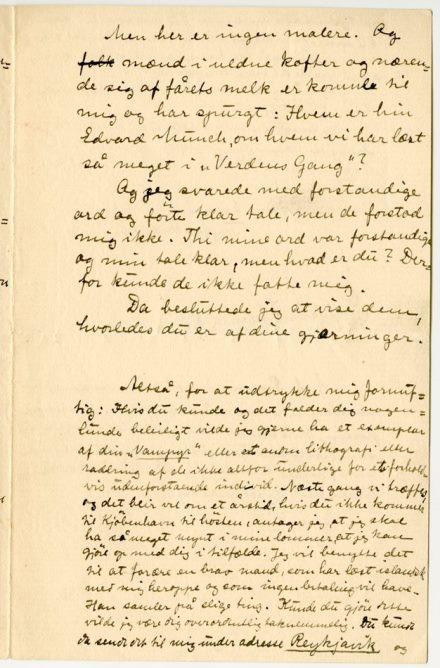 Men her er ingen malere. Og
folk mænd i uldne kofter og næren-
de sig af fårets melk er komne til
mig og har spurgt: Hvem er hin
Edvard Munch, om hvem vi har læst
så meget i "Verdens Gang"?
Og jeg svarede med forstandige
ord og førte klar tale, men de forstod
mig ikke. Thi mine ord var forstandige
og min tale klar, men hvad er du? Der-
for kunde de ikke fatte mig.
Da besluttede jeg at vise dem,
hvorledes du er af dine gjerninger.
Altså, for at udtrykke mig fornuf-
tig: Hvis du kunde og det falder dig nogen-
lunde beleiligt vilde jeg gjerne ha et exemplar
af din "Vampyr" eller en anden lithografi eller
radering af de ikke altfor underlige for et forhold
vis udenforstaende individ. Næste gang vi træffes
og det blir vel om et årstid, hvis du ikke kommer
til Kjøbenhavn til høsten, antager jeg at jeg skal
ha så meget mynt i mine lommer, at jeg kan
gjøre op med dig i tilfælde. Jeg vil benytte det
til at forære en brav mand, som har læst islandsk
med mig heroppe og som ingen betaling vil have.
Han samler på slige ting. Kunde du gjøre dette
vilde jeg være dig overordentlig taknemmelig. Du kunde
da sende det til mig under adresse Reykjavik og